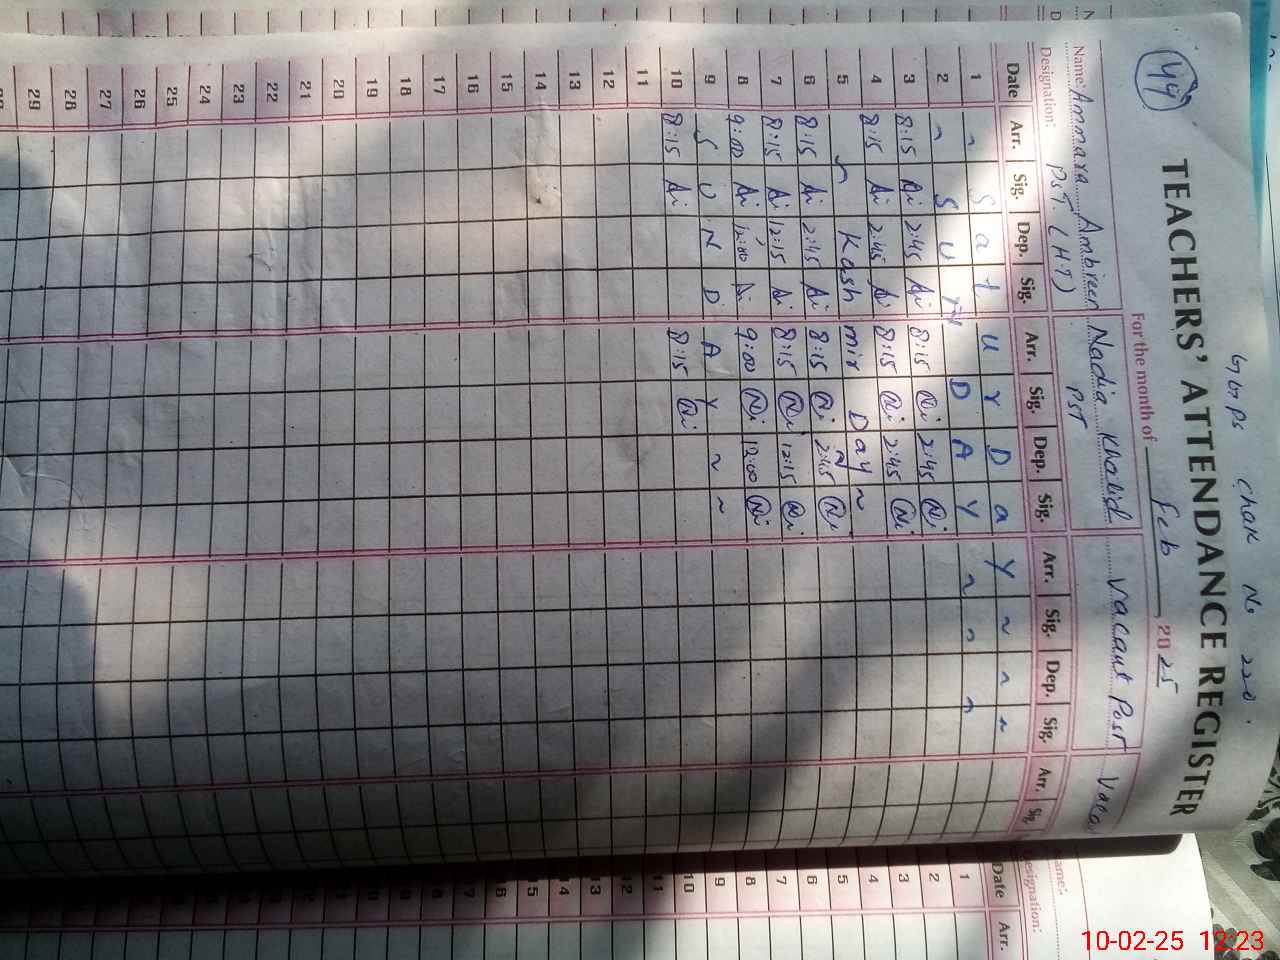 GGPS Chak No 220.
44
TEACHERS' ATTENDANCE REGISTER
For the month of Feb 2025
Name: Ammara Ambreen Nadia Khalid Vacant Post Vaca
Designation: PST (H.T) PST
Date Arr. Sig. Dep. Sig. Arr. Sig. Dep. Sig. Arr. Sig. Dep. Sig. Arr. Sig.
1 ~ S a t u r D a y ~ ~ ~
2 ~ S U N D A Y ~ ~ ~
3 8:15 Ai 2:45 Ai 8:15 Ni 2:45 Ni
4 8:15 Ai 2:45 Ai 8:15 Ni 2:45 Ni
5 ~ Kashmir Day ~
6 8:15 Ai 2:45 Ai 8:15 Ni 2:45 Ni
7 8:15 Ai 12:15 Ai 8:15 Ni 12:15 Ni
8 9:00 Ai 12:00 Ai 9:00 Ni 12:00 Ni
9 S U N D A Y ~ ~
10 8:15 Ai 8:15 Ni
11
12
13
14
15
16
17
18
19
20
21
22
23
24
25
26
27
28
29
Name:
Designation:
Date Arr.
1
2
3
4
5
6
7
8
9
10
11
12
13
14
15
16
17
10-02-25 12:23